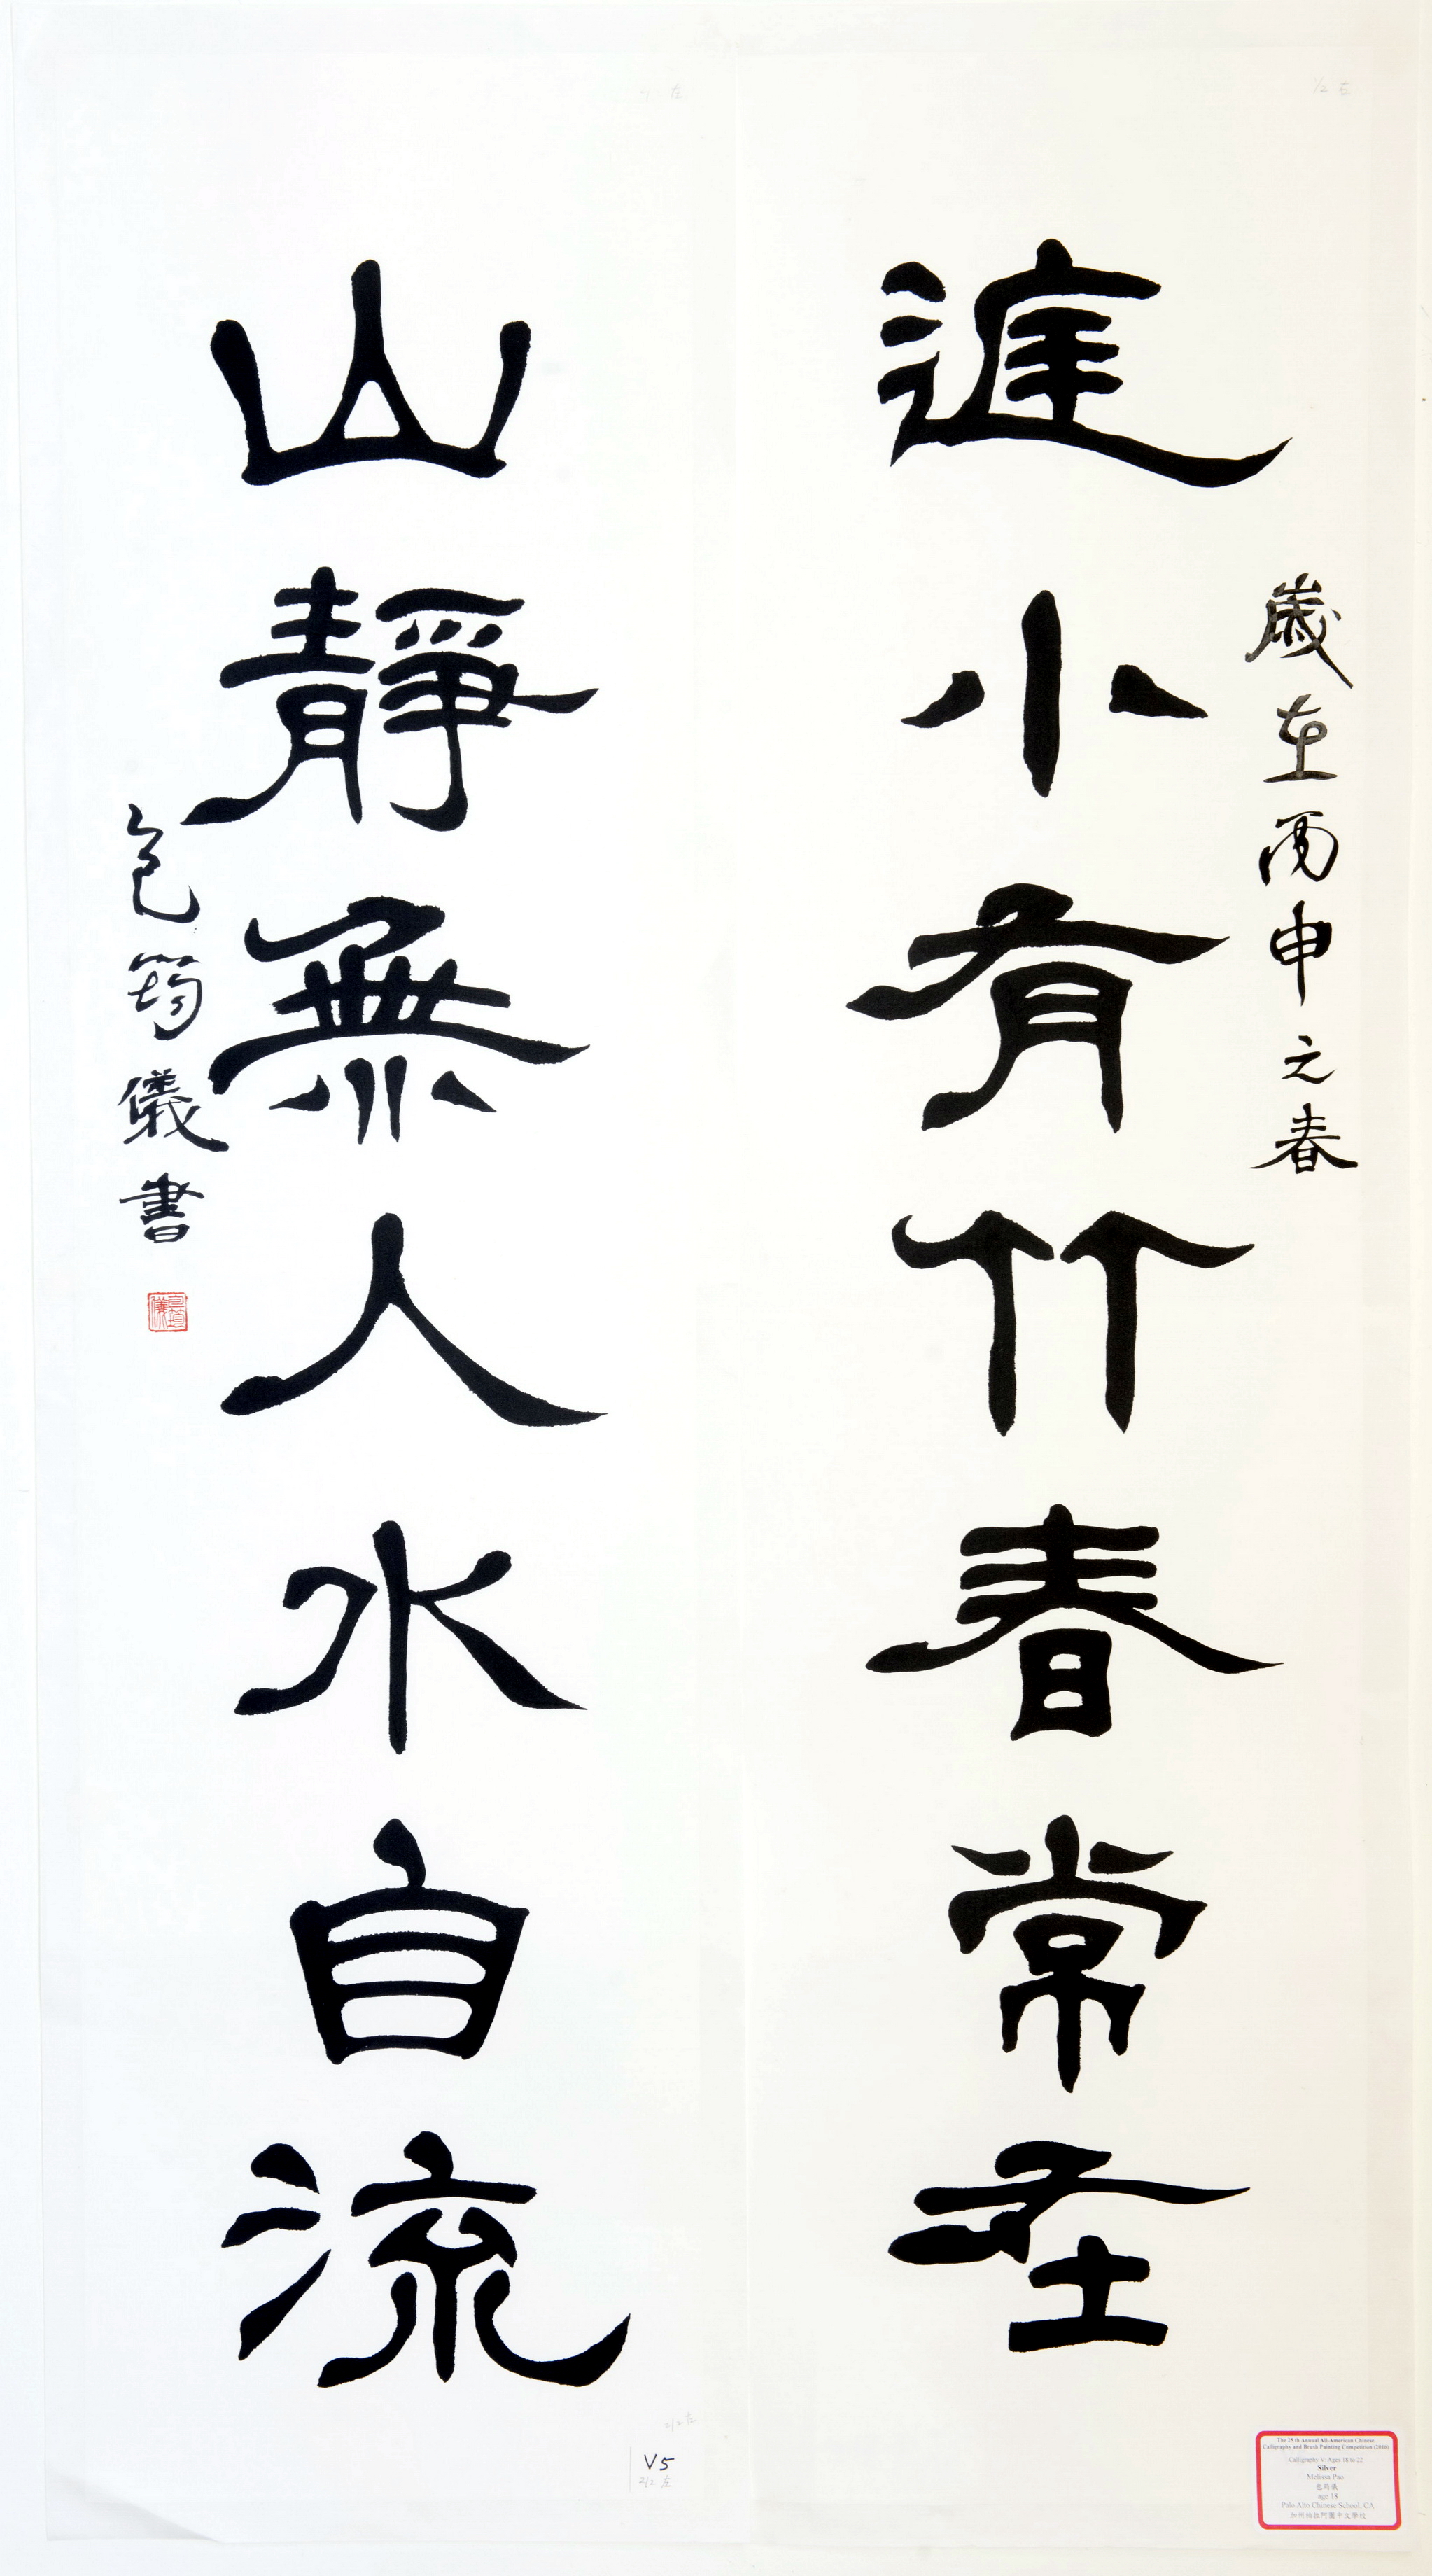 歲在丙申之春
庭小有竹春常在
山靜無人水自流
包筠儀書
包筠儀
V5
2/2 左
2/2 左
The 25th Annual All-American Chinese
Calligraphy and Brush Painting Competition (2016)
Calligraphy V: Ages 18 to 22
Silver
Melissa Pao
包筠儀
age 18
Palo Alto Chinese School, CA